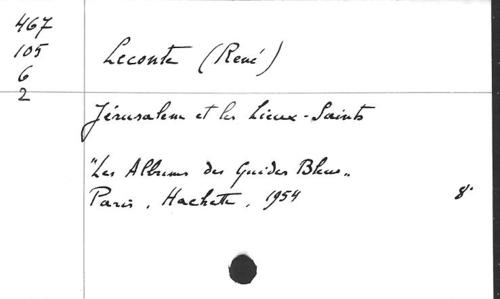 467
105
6
2
Leconte (René)
Jérusalem et les Lieux-Saints
"Les Albums des Guides Bleus"
Paris, Hachette, 1954 8°